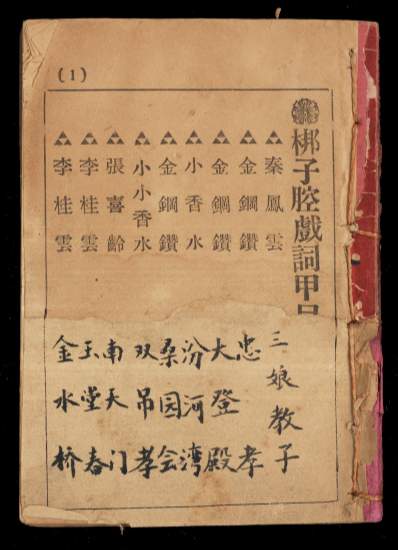 (1)
梆子腔戲詞甲
秦鳳雲
金鋼鑽
金鋼鑽
小香水
金鋼鑽
小小香水
張喜齡
李桂雲
李桂雲
三娘教子
忠孝
大登殿
汾河湾
桑园会
双吊孝
南天门
玉堂春
金水桥